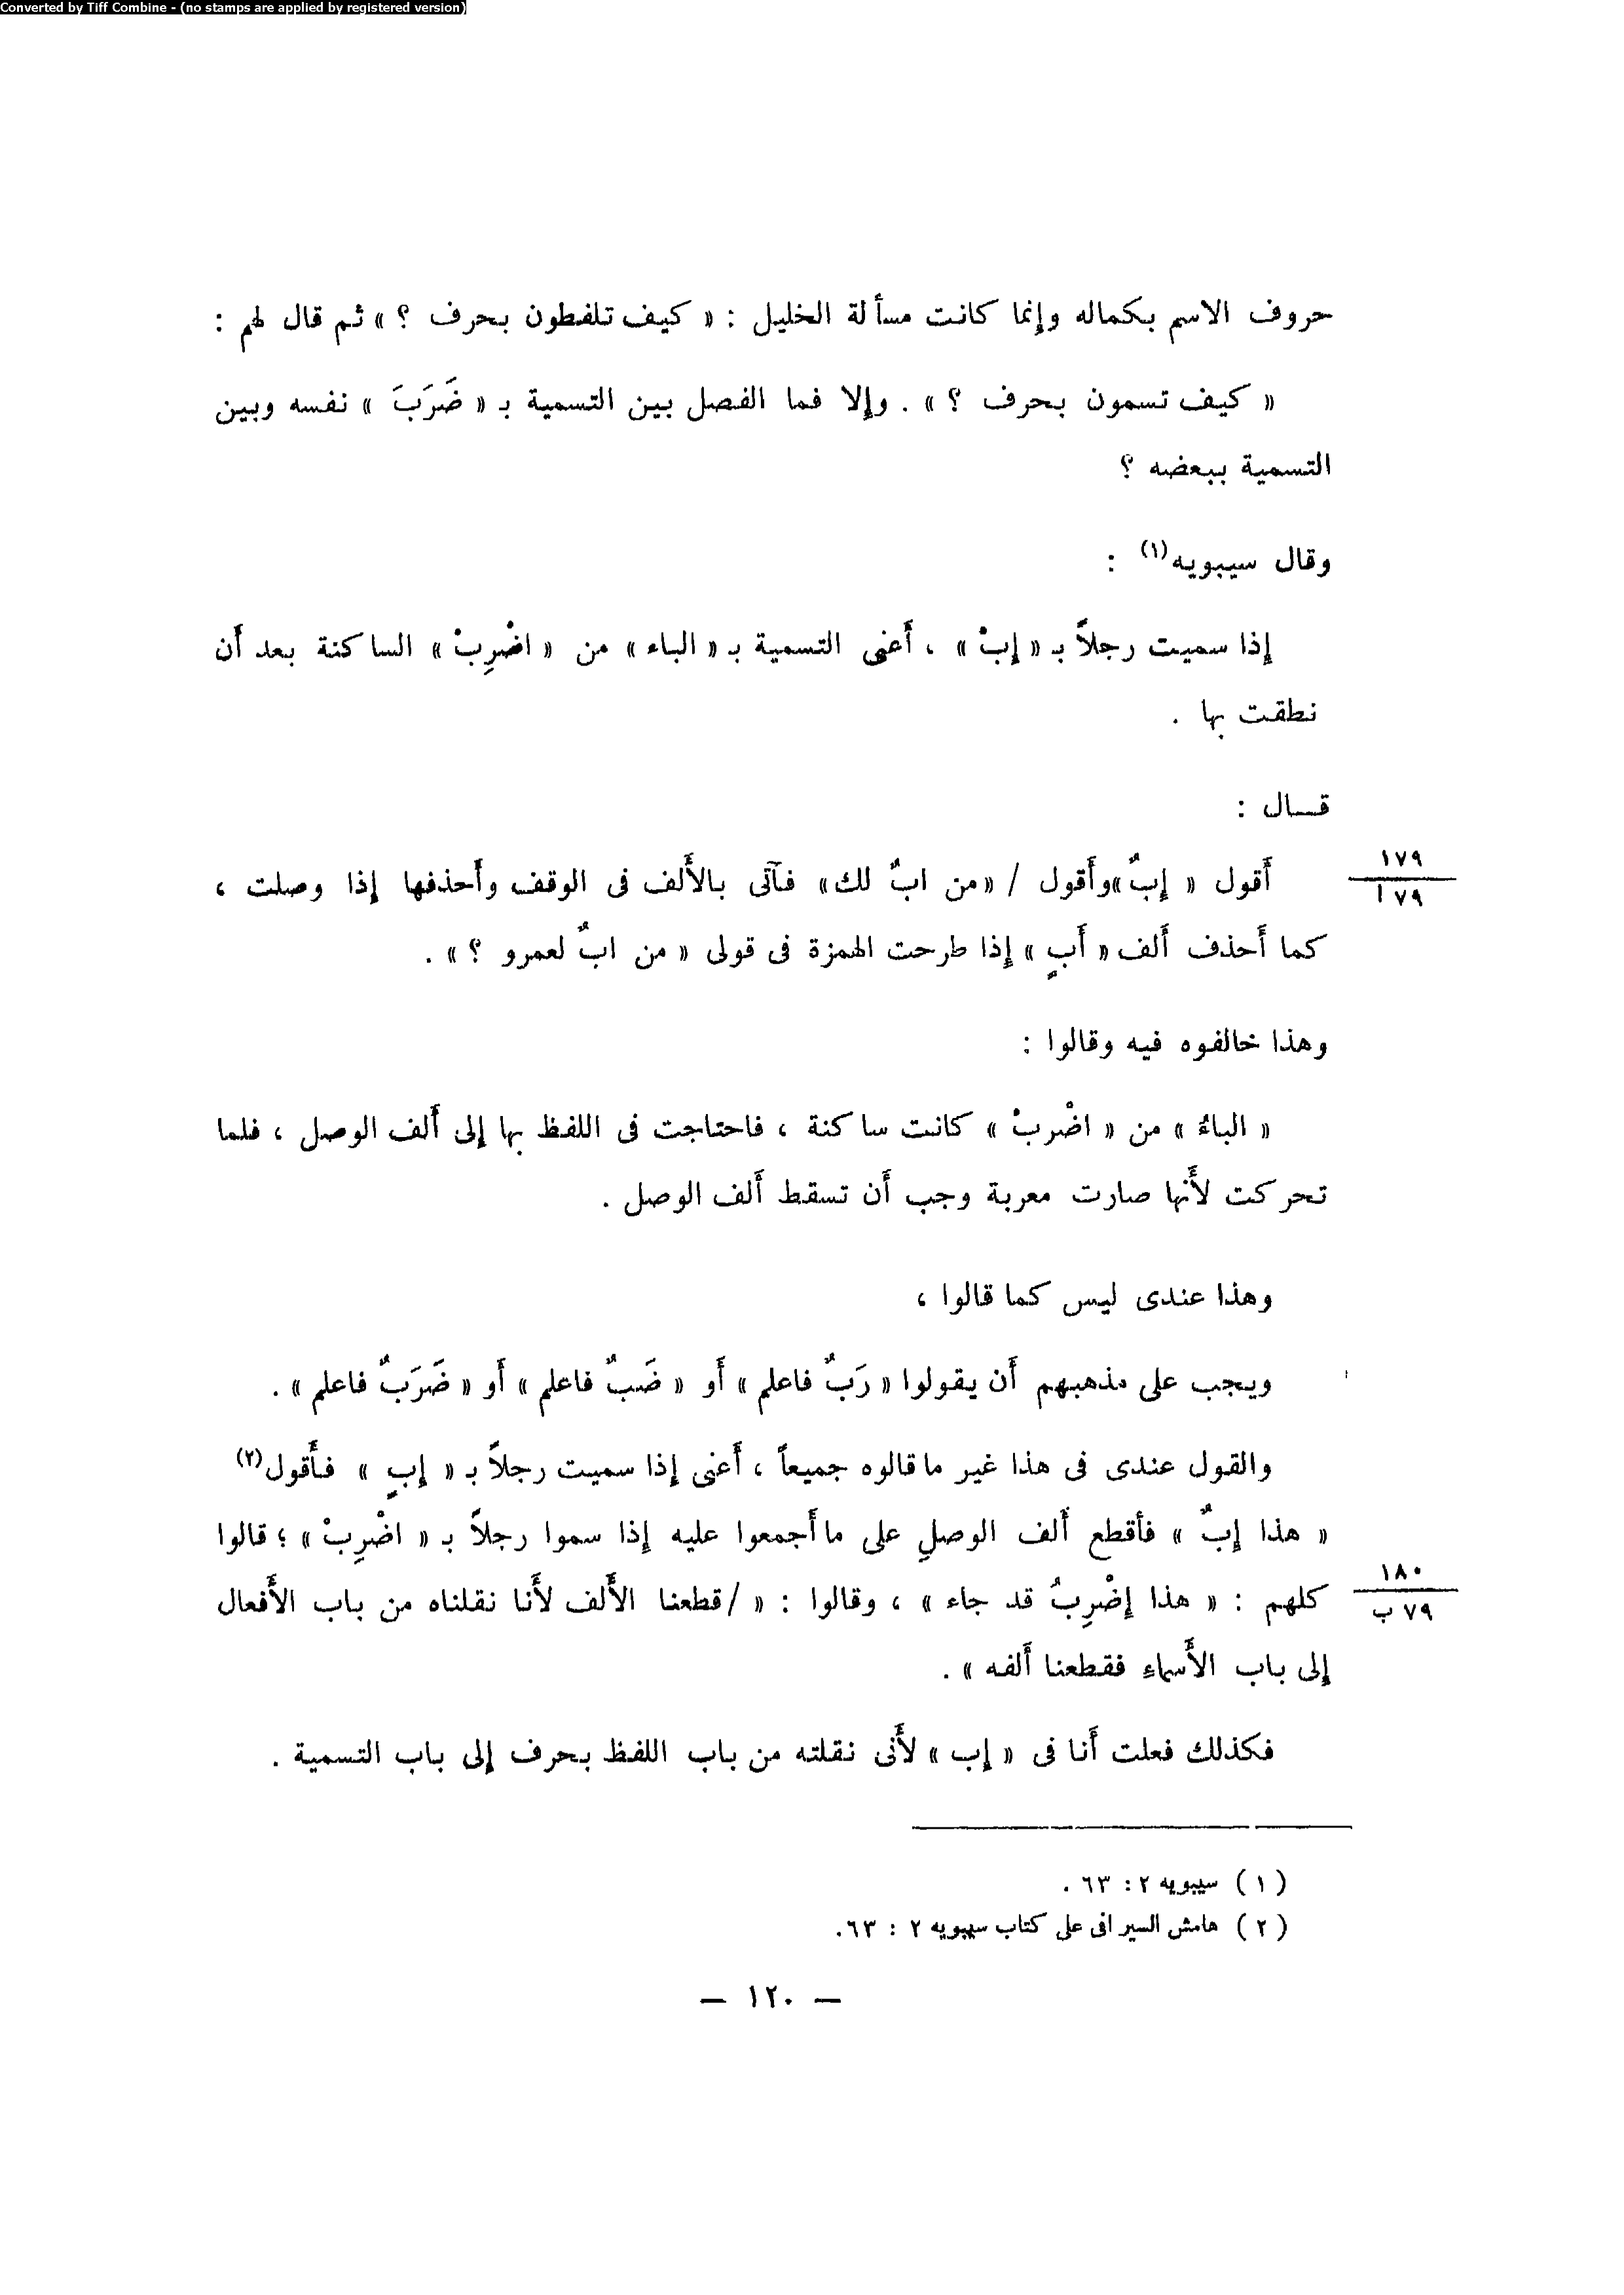 Converted by Tiff Combine - (no stamps are applied by registered version)
حروف الاسم بكماله وإنما كانت مسألة الخليل : « كيف تلفظون بحرف ؟ » ثم قال لهم :
« كيف تسمون بحرف ؟ » . وإلا فما الفصل بين التسمية بـ « ضَرَبَ » نفسه وبين
التسمية ببعضه ؟
وقال سيبويه(١) :
إذا سميت رجلاً بـ « إبْ » ، أَعنى التسمية بـ « الباء » من « اضْرِبْ » الساكنة بعد أَن
نطقت بها .
قــال :
أَقول « إبٌ »وأَقول / «من ابٌ لك» فآتى بالأَلف فى الوقف وأَحذفها إذا وصلت ،
١٧٩
٧٩ ا
كما أَحذف أَلف « أَبٍ » إذا طرحت الهمزة فى قولى « من ابٌ لعمرو ؟ » .
وهذا خالفوه فيه وقالوا :
« الباءُ » من « اضْربْ » كانت ساكنة ، فاحتاجت فى اللفظ بها إلى أَلف الوصل ، فلما
تحركت لأَنها صارت معربة وجب أَن تسقط أَلف الوصل .
وهذا عندى ليس كما قالوا ،
ويجب على مذهبهم أَن يقولوا « رَبٌ فاعلم » أَو « ضَبٌ فاعلم » أَو « ضَرَبٌ فاعلم » .
والقول عندى فى هذا غير ماقالوه جميعاً ، أَعنى إذا سميت رجلاً بـ « إبٍ » فأَقول(٢)
« هذا إبٌ » فأقطع أَلف الوصلِ على ماأَجمعوا عليه إذا سموا رجلاً بـ « اضْرِبْ » ؛ قالوا
كلهم : « هذا إضْرِبُ قد جاء » ، وقالوا : « /قطعنا الأَلف لأَنا نقلناه من باب الأَفعال
١٨٠
٧٩ ب
إلى باب الأَسماءِ فقطعنا أَلفه » .
فكذلك فعلت أَنا فى « إب » لأَنى نقلته من باب اللفظ بحرف إلى باب التسمية .
( ١ ) سيبويه ٢ : ٦٣ .
( ٢ ) هامش السيرافى على كتاب سيبويه ٢ : ٦٣.
— ١٢٠ —